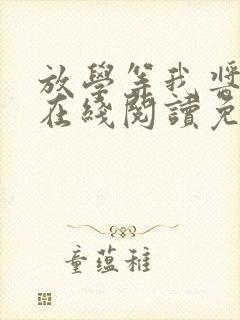 放學等我將
在綫閱讀免
童蕴稚